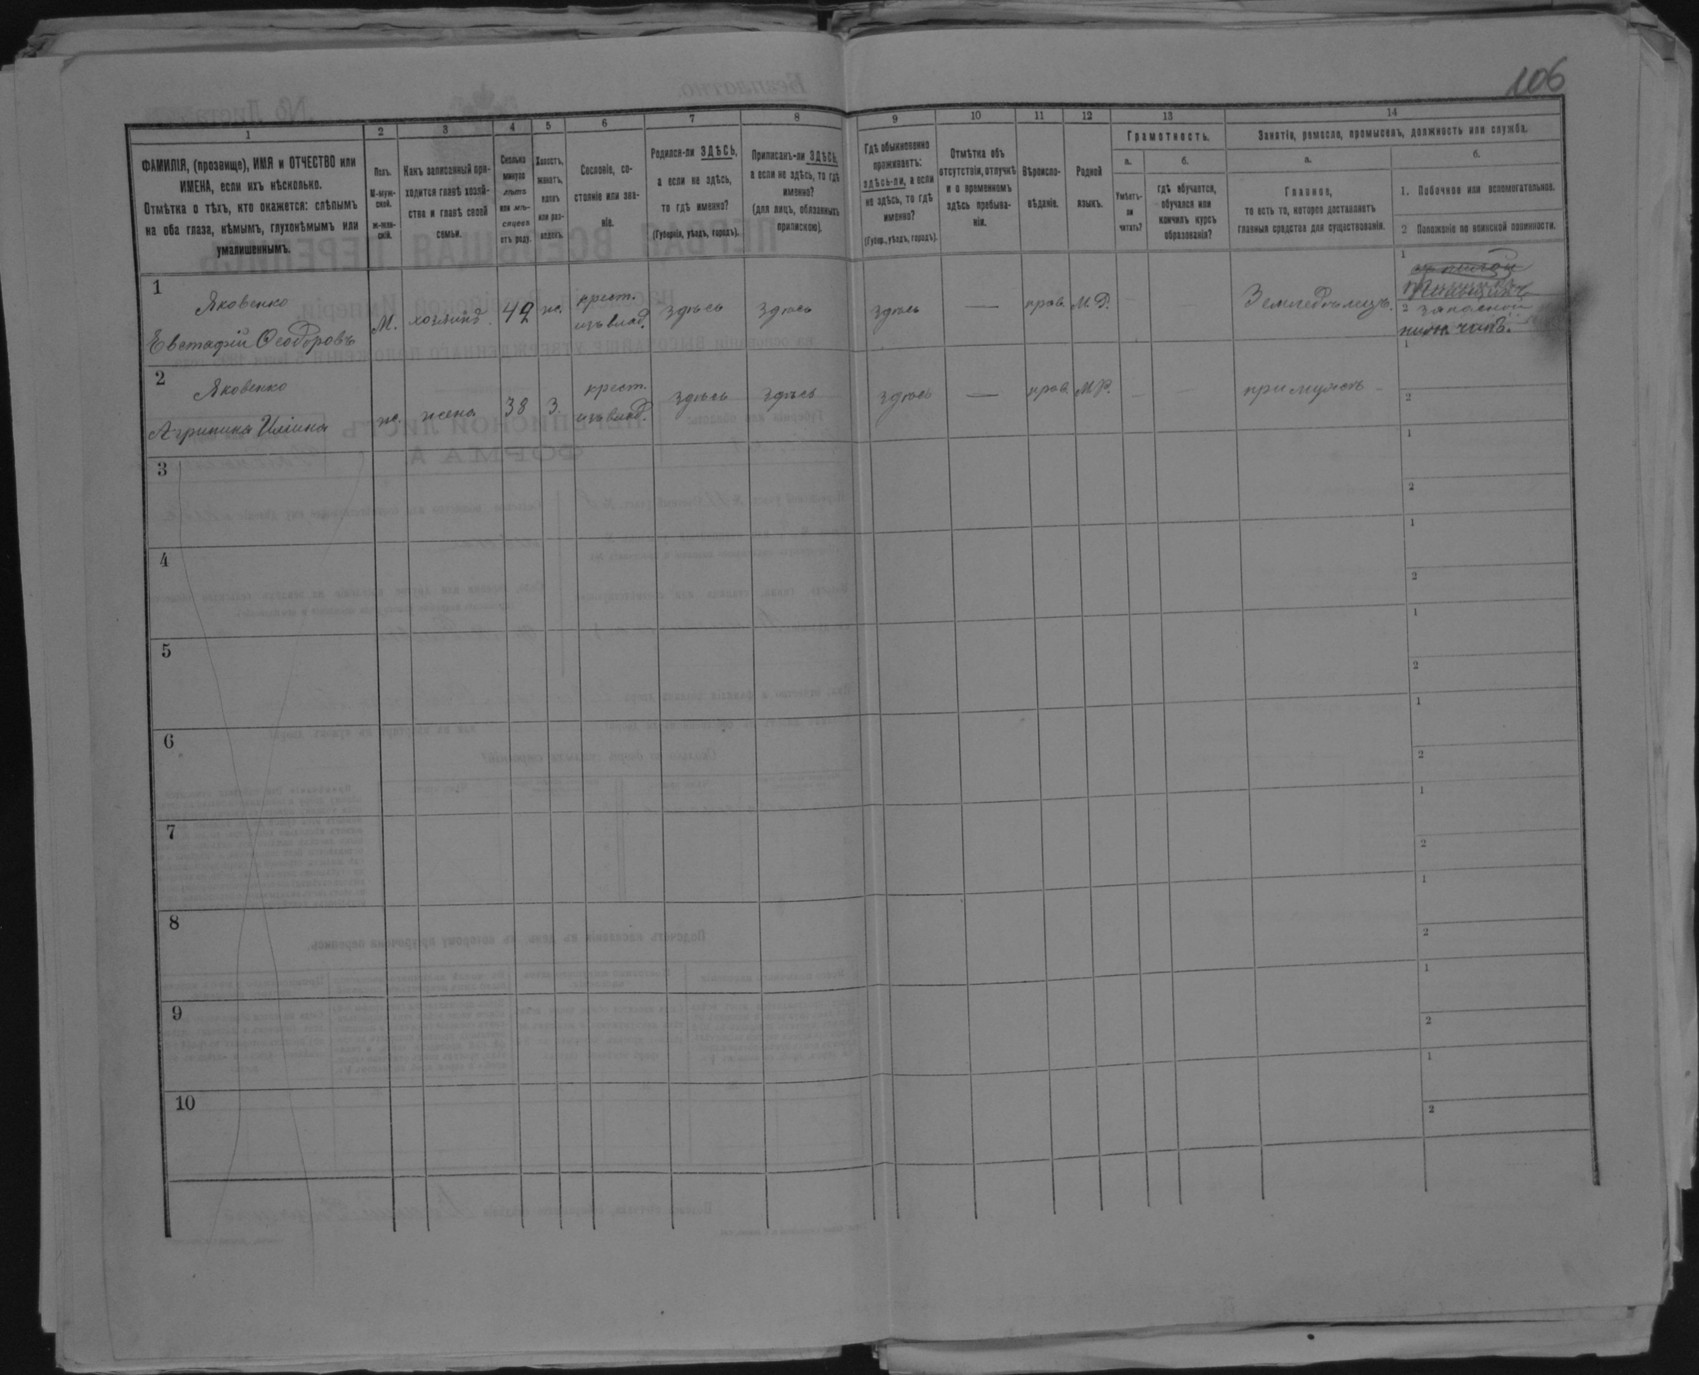 106
1
2
3
4
5
6
7
8
9
10
11
12
13
14
ФАМИЛІЯ, (прозвище), ИМЯ и ОТЧЕСТВО или
ИМЕНА, если ихъ нѣсколько.
Отмѣтка о тѣхъ, кто окажется: слѣпымъ
на оба глаза, нѣмымъ, глухонѣмымъ или
умалишеннымъ.
Полъ.
М-муж-
ской.
ж-жен-
скій.
Какъ записанный при-
ходится главѣ хозяй-
ства и главѣ своей
семьи.
Сколько
минуло
лѣтъ
или мѣ-
сяцевъ
отъ роду.
Холостъ,
женатъ,
вдовъ
или раз-
веденъ.
Сословіе, со-
стояніе или зва-
ніе.
Родился-ли ЗДѢСЬ,
а если не здѣсь,
то гдѣ именно?
(Губернія, уѣздъ, городъ).
Приписанъ-ли ЗДѢСЬ,
а если не здѣсь, то гдѣ
именно?
(для лицъ, обязанныхъ
припискою).
Гдѣ обыкновенно
проживаетъ:
здѣсь-ли, а если
не здѣсь, то гдѣ
именно?
(Губер., уѣздъ, городъ).
Отмѣтка объ
отсутствіи, отлучкѣ
и о временномъ
здѣсь пребыва-
ніи.
Вѣроиспо-
вѣданіе.
Родной
языкъ.
Грамотность.
а.
б.
Умѣетъ-
ли
читать?
гдѣ обучается,
обучался или
кончилъ курсъ
образованія?
Занятіе, ремесло, промыселъ, должность или служба.
а.
б.
Главное,
то есть то, которое доставляетъ
главныя средства для существованія.
1. Побочное или вспомогательное.
2 Положеніе по воинской повинности.
1
Яковенко
Евстафій Ѳеодоровъ
М.
хозяинъ
42
ж.
крест.
изъ влад.
здѣсь
здѣсь
здѣсь
—
прав.
М.Р.
—
—
Земледѣлецъ.
1
2 запасной
нижн. чинъ.
2
Яковенко
Агрипина Ильина
ж.
жена
38
З.
крест.
изъ влад.
здѣсь
здѣсь
здѣсь
—
прав.
М.Р.
—
—
при мужѣ
1
2
3
1
2
4
1
2
5
1
2
6
1
2
7
1
2
8
1
2
9
1
2
10
1
2